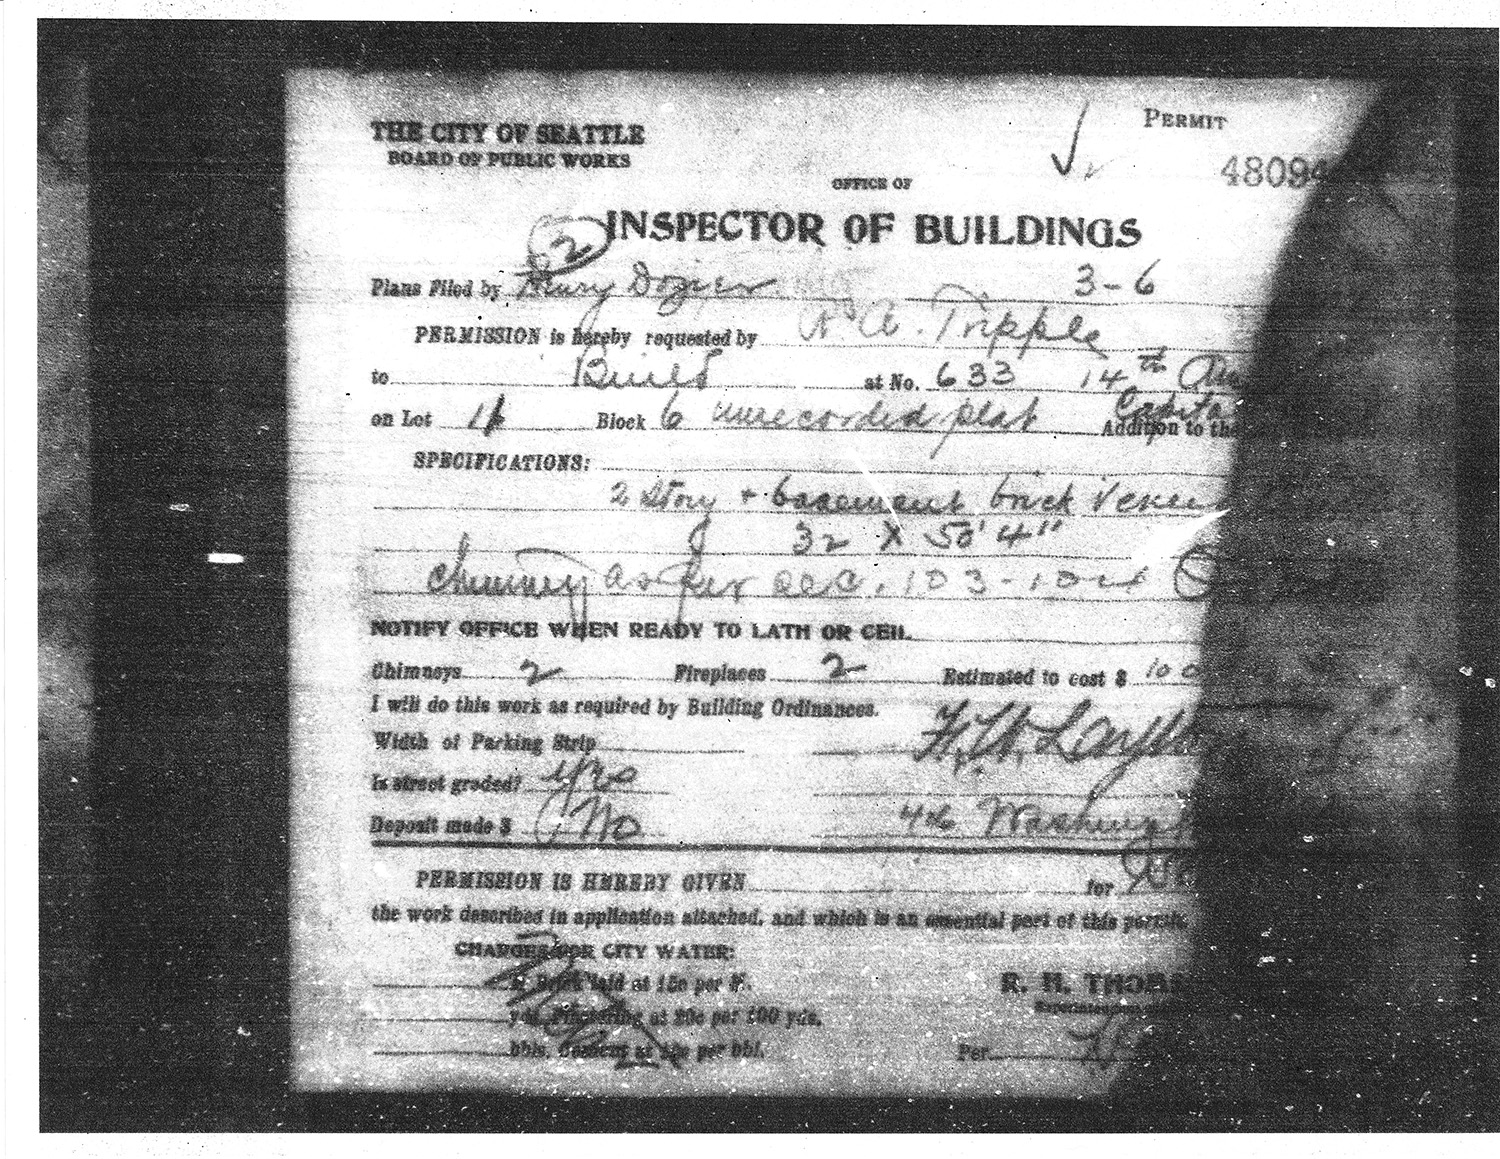 THE CITY OF SEATTLE
BOARD OF PUBLIC WORKS
PERMIT
48094
OFFICE OF
INSPECTOR OF BUILDINGS
2
Plans Filed by Henry Dozier 3-6
PERMISSION is hereby requested by A. Tripple
to Build at No. 633 14th Av
on Lot Block 6 unrecorded plat Capito Addition to the
SPECIFICATIONS:
2 Story + basement brick Venee
32 X 50'4"
Chimney as per sec. 103-
NOTIFY OFFICE WHEN READY TO LATH OR CEIL
Chimneys 2 Fireplaces 2 Estimated to cost $ 100
I will do this work as required by Building Ordinances.
Width of Parking Strip
Is street graded? yes
Deposit made $ No 406 Washing
PERMISSION IS HEREBY GIVEN for
the work described in application attached, and which is an essential part of this permit.
CHARGES FOR CITY WATER:
M. Brick laid at 15c per M.
R. H. THOMS
Superintendent
yds. Plastering at 20c per 100 yds.
bbls. Cement at per bbl.
Per